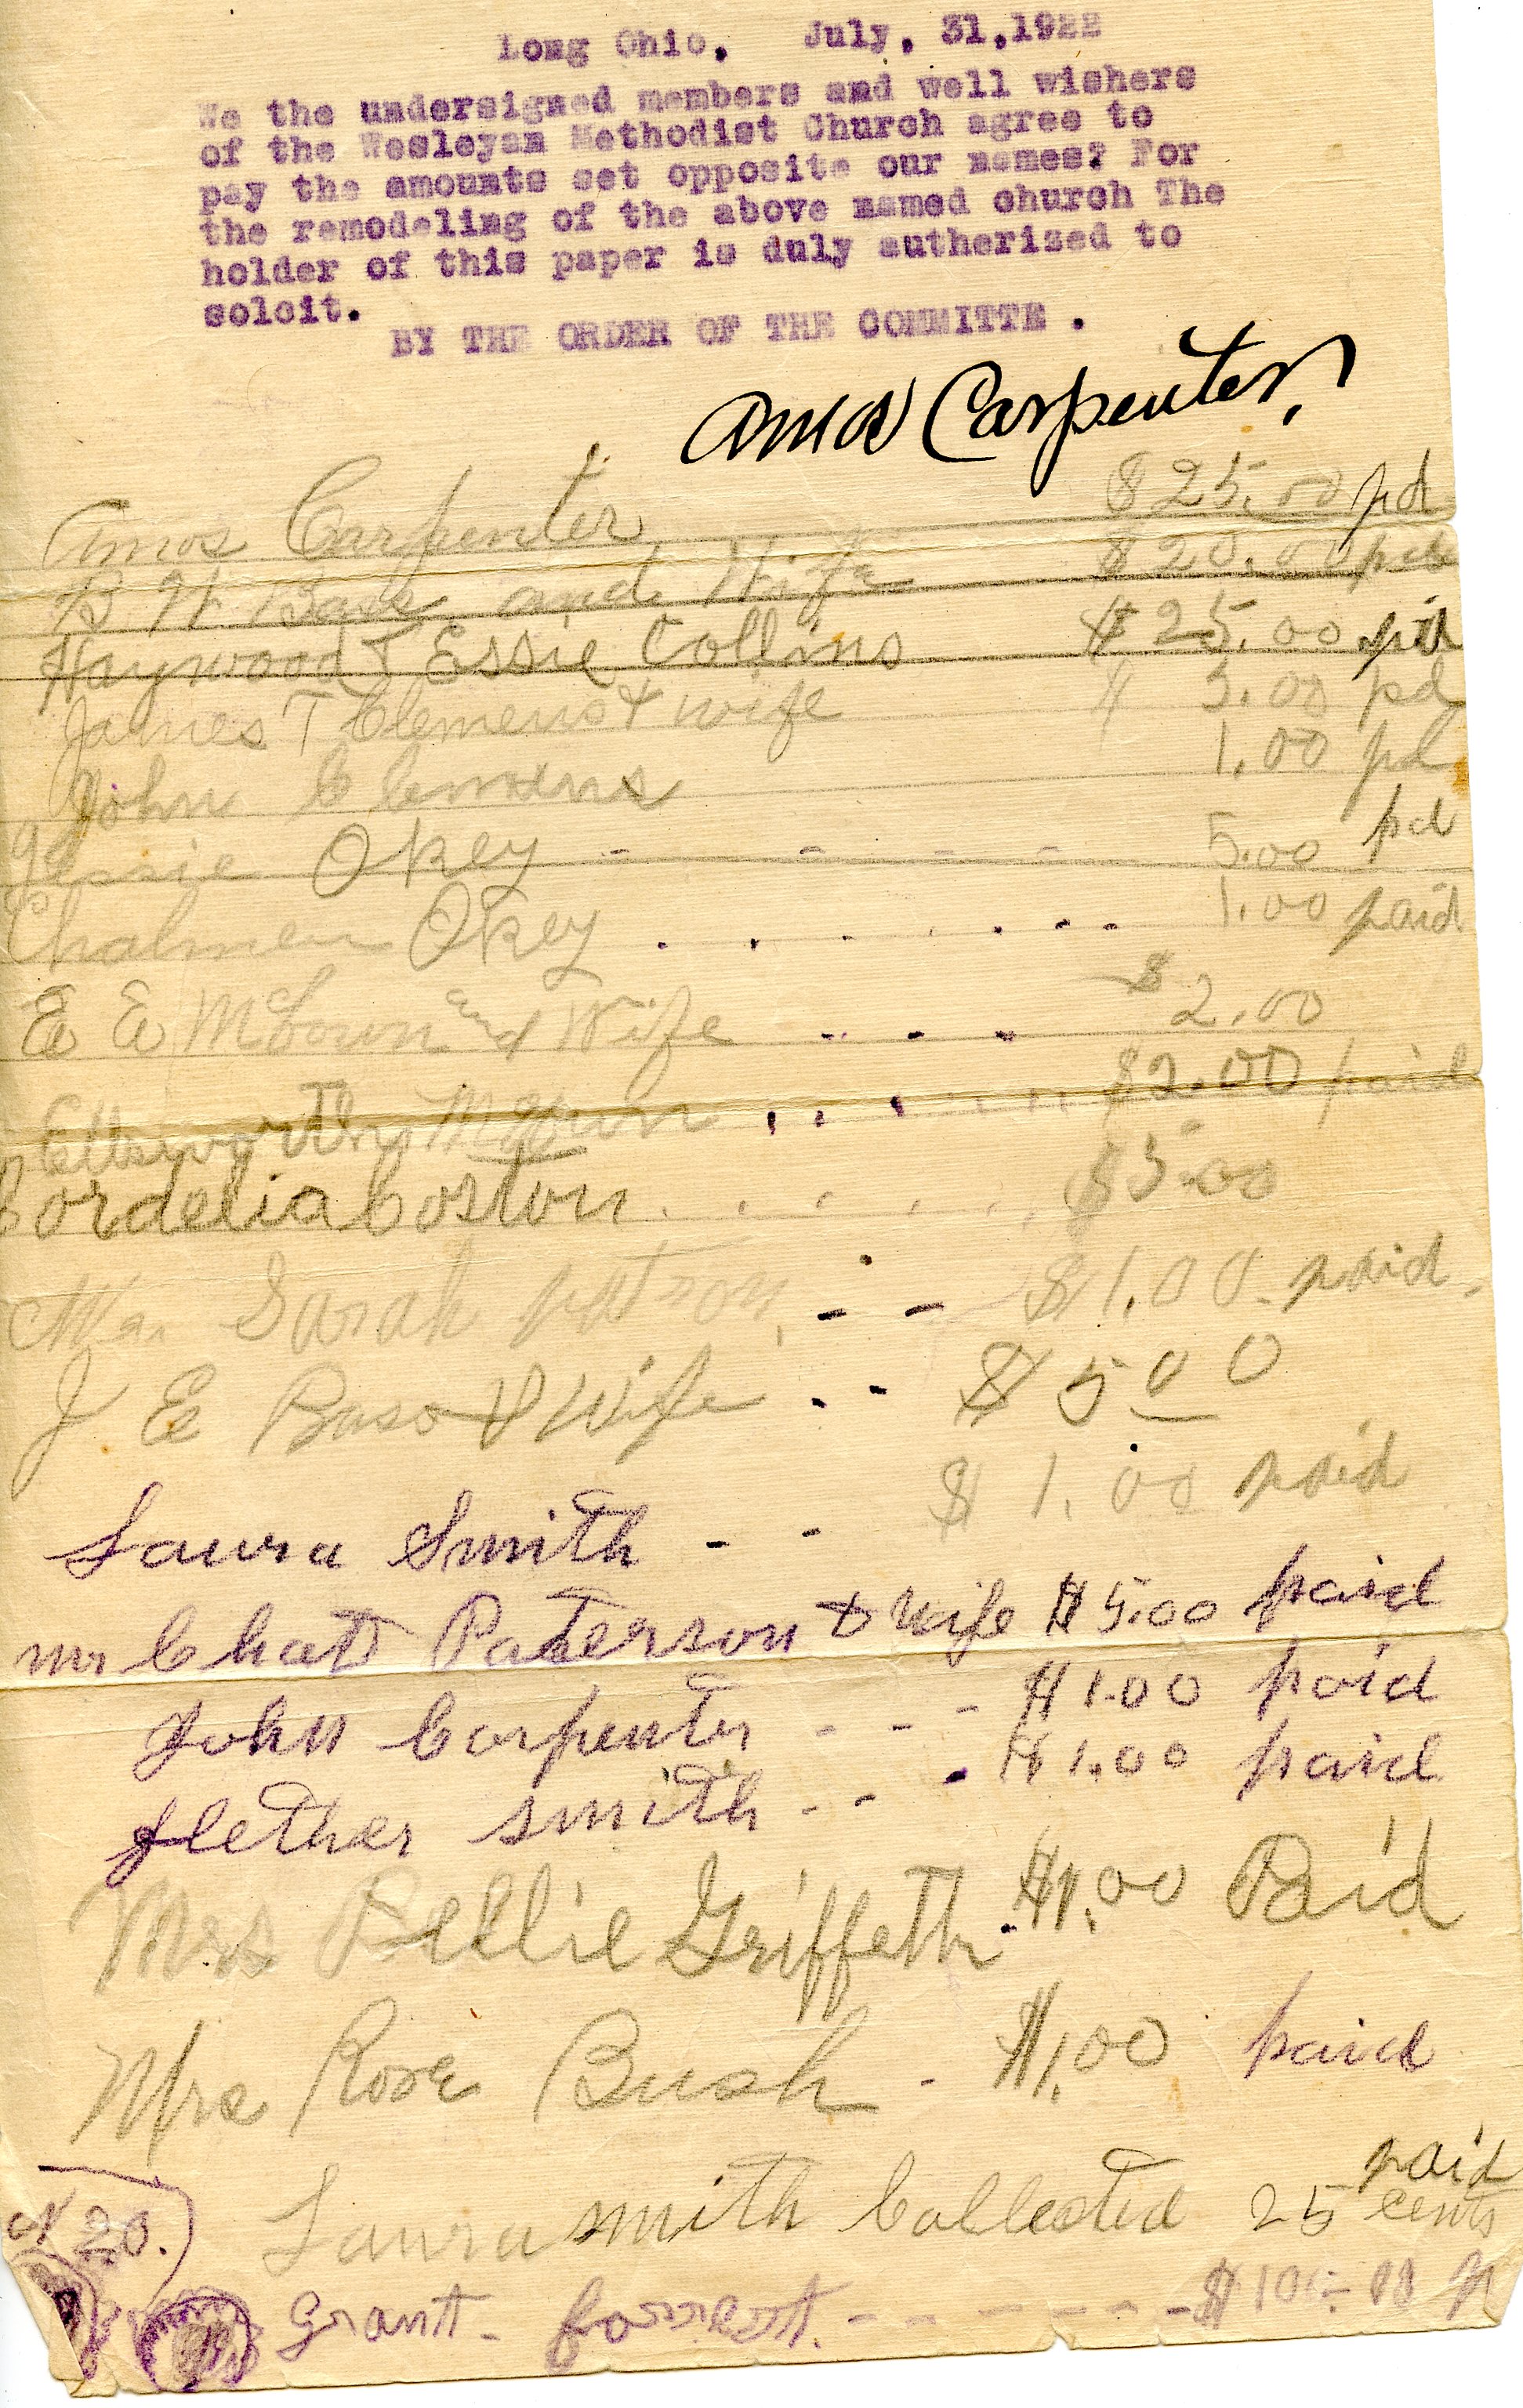 Long Ohio, July, 31,1922
We the undersigned members and well wishers
of the Wesleyan Methodist Church agree to
pay the amounts set opposite our names? For
the remodeling of the above named church The
holder of this paper is duly autherized to
soloit.
BY THE ORDER OF THE COMMITTE .
Amos Carpenter
Amos Carpenter $25.00 pd
B W and Wife $20.00 pd
Haywood & Essie Collins $25.00 pd
James T Clemens & wife $ 5.00 pd
John Clemens 1.00 pd
Jessie Okey - - - - 5.00 pd
Chalmer Okey . . . . . . . . 1.00 paid
E E and Wife - - - $2.00
Ellsworth $2.00 paid
Cordelia Coston $5.00
Sarah - - $1.00 paid
J E & Wife - - $500
Laura Smith - - $1.00 paid
mr Chat Paterson & wife $5.00 paid
John Carpenter - - - $1.00 paid
flether smith - - - $1.00 paid
Mrs Griffeth $1.00 Paid
Mrs Rose Bush - $1.00 paid
Laura smith Collected 25 cents paid
N 20.
Grant - forrest - - - - - -